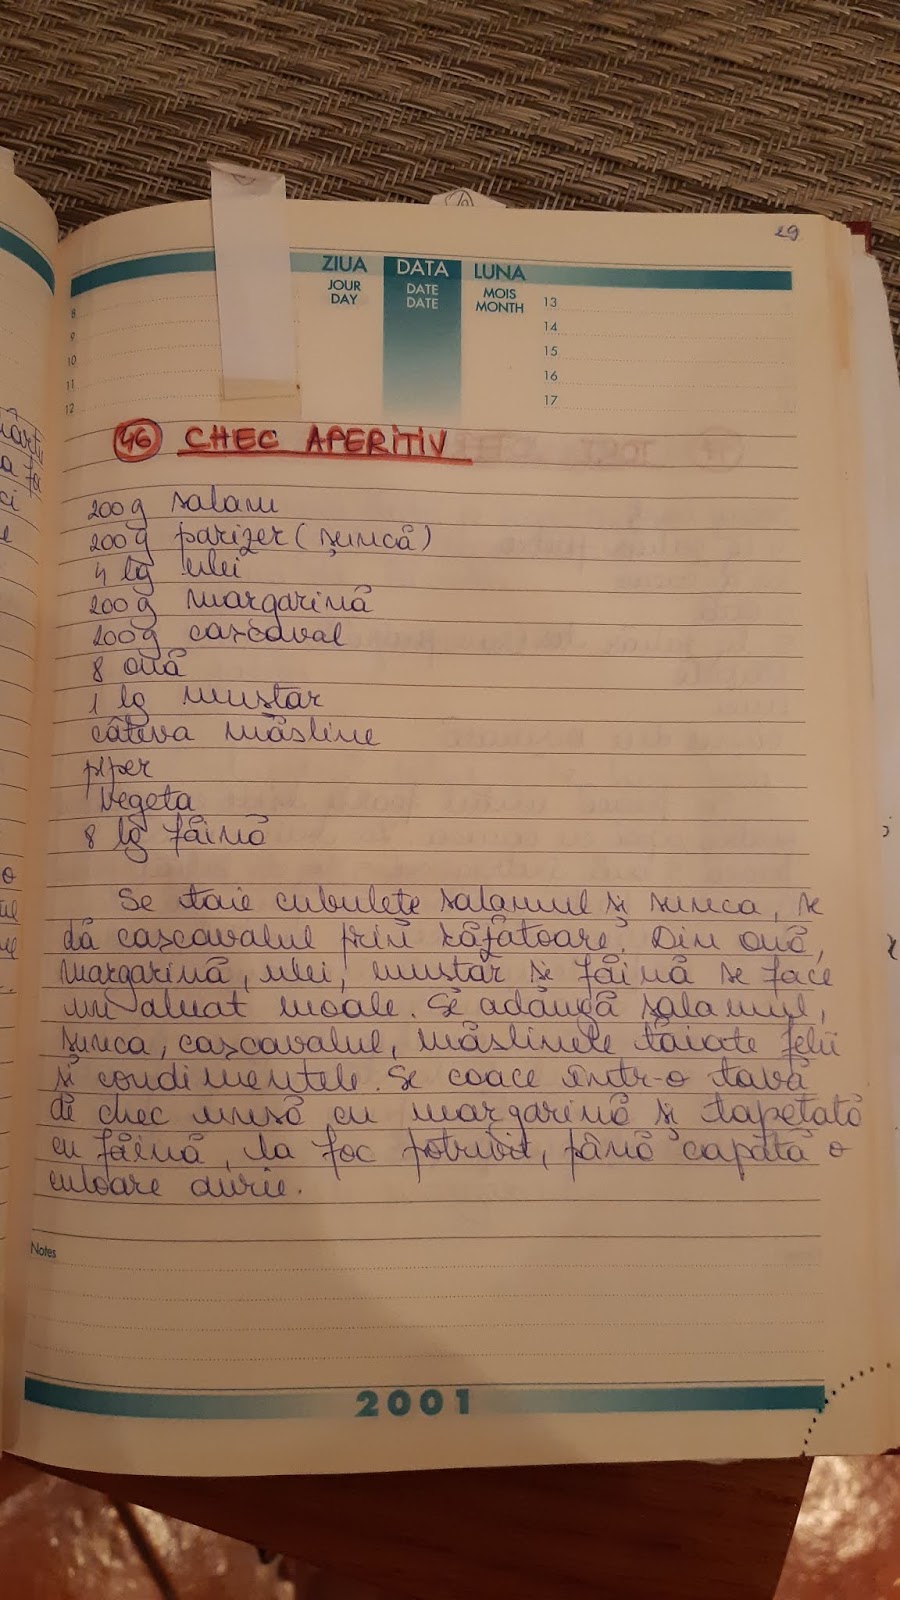 29
ZIUA DATA LUNA
JOUR DATE MOIS
DAY DATE MONTH
8 13
9 14
10 15
11 16
12 17
46 CHEC APERITIV
200 g salam
200 g parizer (șuncă)
4 lg ulei
200 g margarină
200 g cașcaval
8 ouă
1 lg muștar
câteva măsline
piper
Vegeta
8 lg făină
Se taie cubulețe salamul și șunca, se
dă cașcavalul prin răzătoare. Din ouă,
margarină, ulei, muștar și făină se face
un aluat moale. Se adăugă salamul,
șunca, cașcavalul, măslinele tăiate felii
și condimentele. Se coace într-o tavă
de chec unsă cu margarină și tapetată
cu făină, la foc potrivit, până capătă o
culoare aurie.
Notes
2001